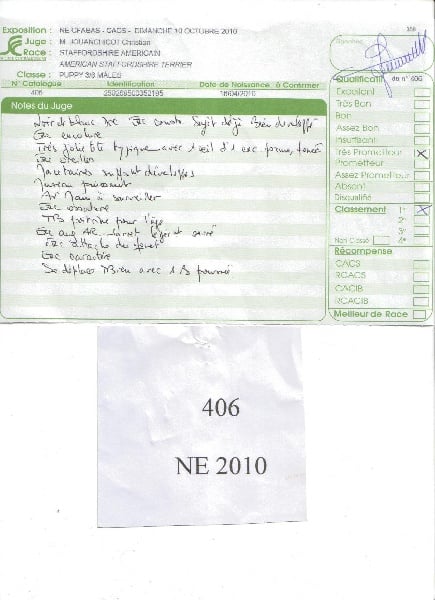 Exposition : NE CFABAS - CACS - DIMANCHE 10 OCTOBRE 2010
Juge : M. JOUANCHICOT Christian
Race : STAFFORDSHIRE AMERICAIN
AMERICAN STAFFORDSHIRE TERRIER
Classe : PUPPY 3/6 MÂLES
N° Catalogue Identification Date de Naissance à Confirmer
406 250269500352195 18/04/2010
Notes du Juge
Noir et blanc Exc construit Sujet déjà bien développé
Exc encolure
Très jolie tête typique avec 1 œil d'1 exc forme, foncé
Exc
suffist développés
Museau puissant
à surveiller
Exc
TB poitrine pour l'âge
Exc
Exc attache du fouet
Exc caractère
Se déplace bien avec 1 B poussée
358
Qualificatif du n° 406
Excellent
Très Bon
Bon
Assez Bon
Insuffisant
Très Prometteur X
Prometteur
Assez Prometteur
Absent
Disqualifié
Classement 1er X
2e
3e
Non Classé 4e
Récompense
CACS
RCACS
CACIB
RCACIB
Meilleur de Race
406
NE 2010